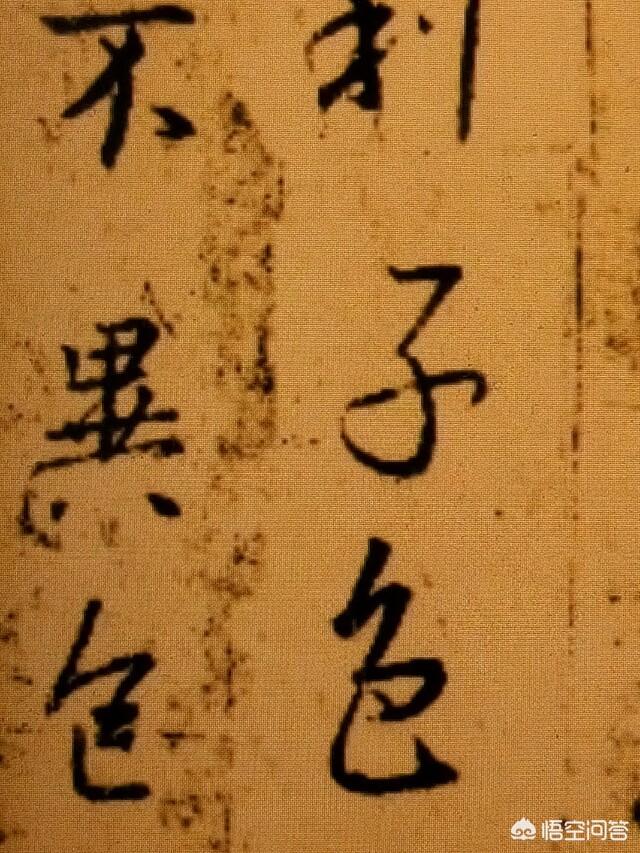 利子色
不異色
悟空问答